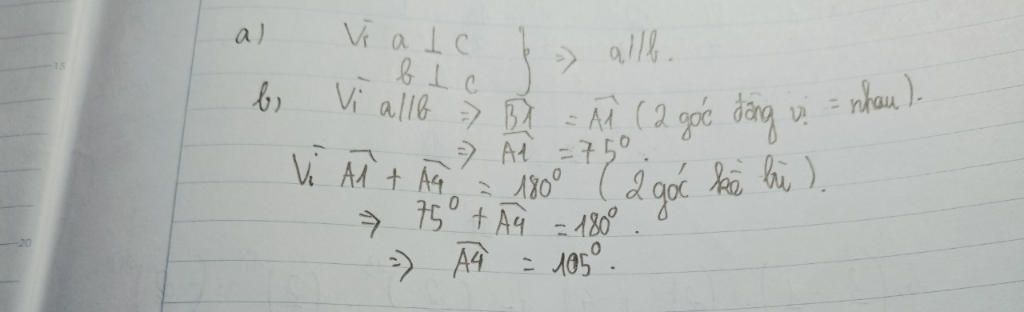 a) Vì a ⊥ c } => a//b.
b ⊥ c
b, Vì a//b => B1 = A1 (2 góc đồng vị = nhau).
=> A1 = 75°.
Vì A1 + A4 = 180° (2 góc kề bù).
=> 75° + A4 = 180°.
=> A4 = 105°.
15
20